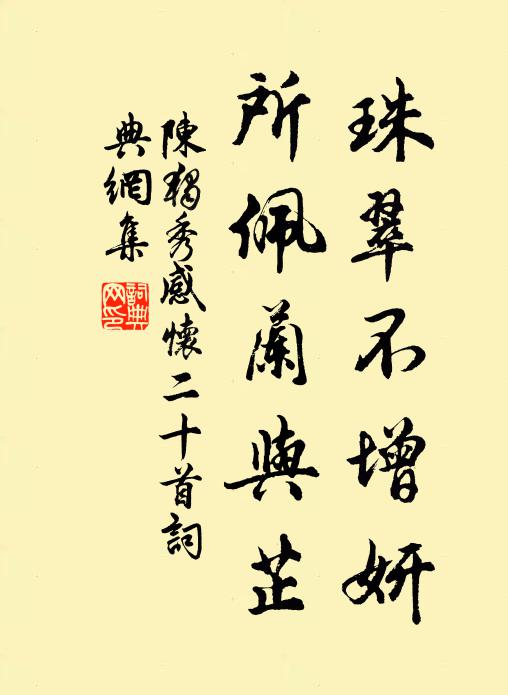 珠翠不增妍
所佩蘭與芷
陳獨秀感懷二十首詞
典網集
詞典網印